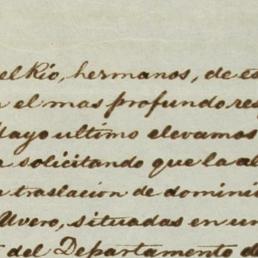 el Rio, hermanos, de es
el mas profundo res
Mayo ultimo elevamos
solicitando que la al
traslacion de domini
Uvero, situadas en un
del Departamento de